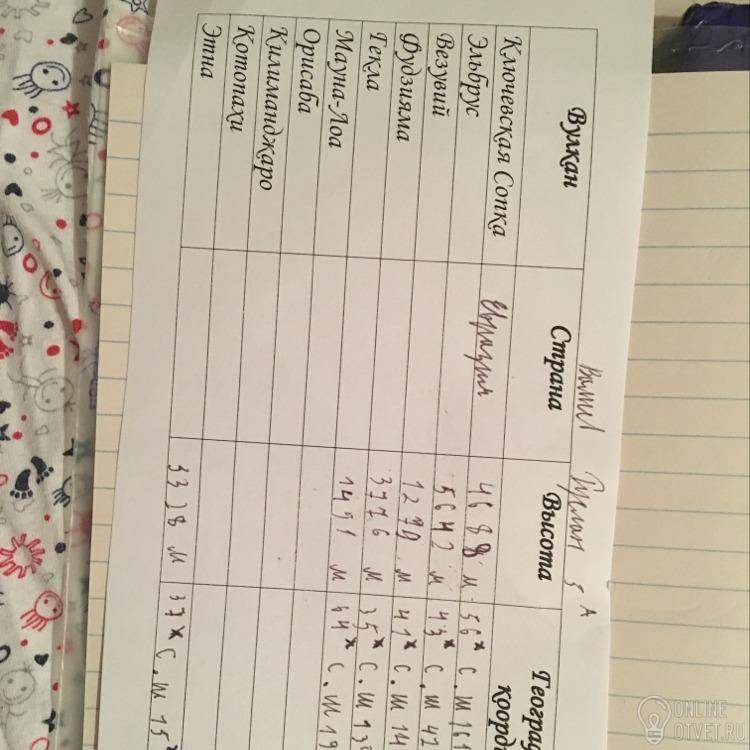 5 А
Вулкан Страна Высота Географ
коорд
Ключевская Сопка Евразия 4688 м 56* С.Ш 161
Эльбрус 5642 м 43* С.Ш 42
Везувий 1279 м 41* С.Ш 14
Фудзияма 3776 м 35* С.Ш 13
Гекла 1491 м 64* С.Ш 19
Мауна-Лоа
Орисаба
Килиманджаро
Котопахи
Этна 3328 м 37* С.Ш 15*
ONLINE
OTVET.RU